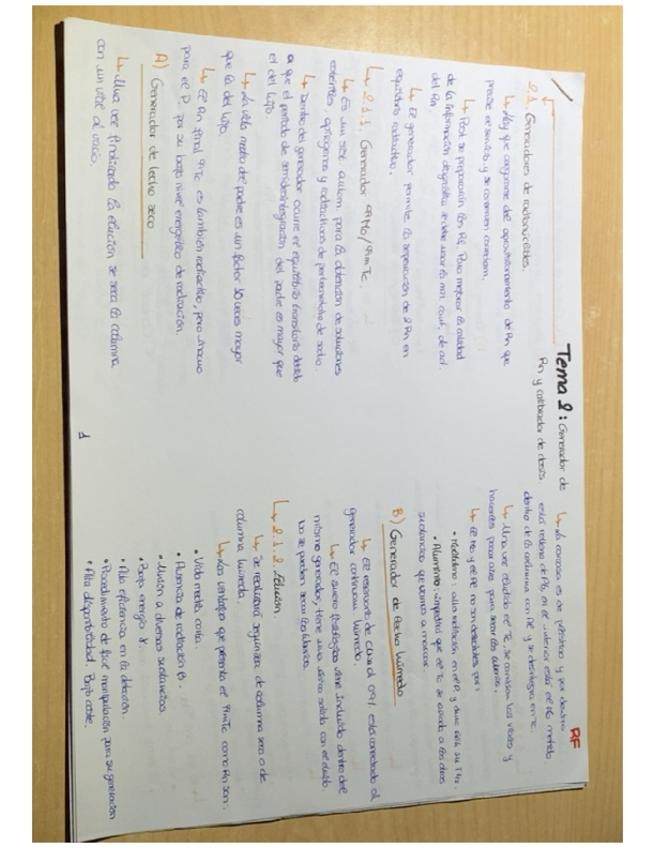 RF
Tema 2: Generador de
Rn y calibrador de dosis.
2.1. Generadores de radionúclidos.
↳ Hay que asegurarse del aprovisionamiento de Rn que
precise el servicio y se conserven
↳ Post se prepararán los RF. Para mejorar la calidad
de la información diagnóstica se debe usar la
del Rn.
↳ El generador permite la separación de 2 Rn en
equilibrio radiactivo.
↳ 2.1.1. Generador 99Mo/99mTc.
↳ Es un sist. autom. para la obtención de soluciones
estériles, apirógenas y radiactivas de pertecnetato de sodio.
↳ Dentro del generador ocurre el equilibrio transitorio debido
a que el periodo de semidesintegración del padre es mayor que
el del hijo.
↳ La vida media del padre es un factor 10 veces mayor
que la del hijo.
↳ El Rn final 99Tc es también radiactivo, pero inocuo
para el P. por su bajo nivel energético de radiación.
A) Generador de lecho seco
↳ Una vez finalizada la elución se seca la columna
con un vial al vacío.
1
↳ La carcasa es de plástico y por dentro
está rellena de Pb, en el interior está el Mo metido
dentro de la columna con
↳ Una vez eluido el Tc, se cambian los viales y
hacerles pasar aire para secar
↳ El Mo y el Al no son deseables por:
• Molibdeno: alta radiación en el P, y dura más su T 1/2.
• Aluminio: impedirá que el Tc se una a las otras
sustancias que vamos a marcar.
B) Generador de lecho húmedo
↳ El reservorio de ClNa al 0,9% está conectado al
generador continuam. húmedo.
↳ El suero fisiológico viene incluido dentro del
mismo generador, tiene una única salida con el eluido.
No se pueden secar
↳ 2.1.2 Elución.
↳ Se realizará según sea de columna seca o de
columna húmeda.
↳ Las ventajas que presenta el 99mTc como Rn son:
• Vida media corta.
• Ausencia de radiación β.
• Unión a diversas sustancias.
• Baja energía γ.
• Alta eficiencia en la detección.
• Procedimiento de fácil manipulación para su generación
• Alta disponibilidad. Bajo coste.